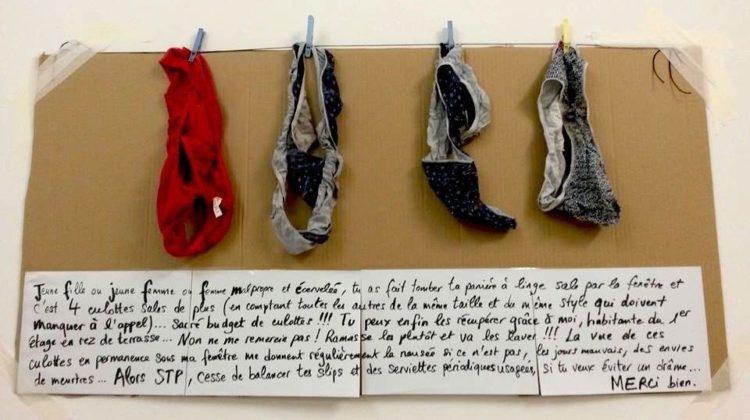 Jeune fille ou jeune femme ou femme malpropre et écervelée, tu as fait tomber ta panière à linge sale par la fenêtre et
c'est 4 culottes sales de plus (en comptant toutes les autres de la même taille et du même style qui doivent
manquer à l'appel)... Sacré budget de culottes !!! Tu peux enfin les récupérer grâce à moi, habitante du 1er
étage en rez de terrasse... Non ne me remercie pas ! Ramasse-la plutôt et va les laver !!! La vue de ces
culottes en permanence sous ma fenêtre me donnent régulièrement la nausée si ce n'est pas, les jours mauvais, des envies
de meurtres... Alors STP, cesse de balancer tes slips et des serviettes périodiques usagées, si tu veux éviter un drâme...
MERCi bien.